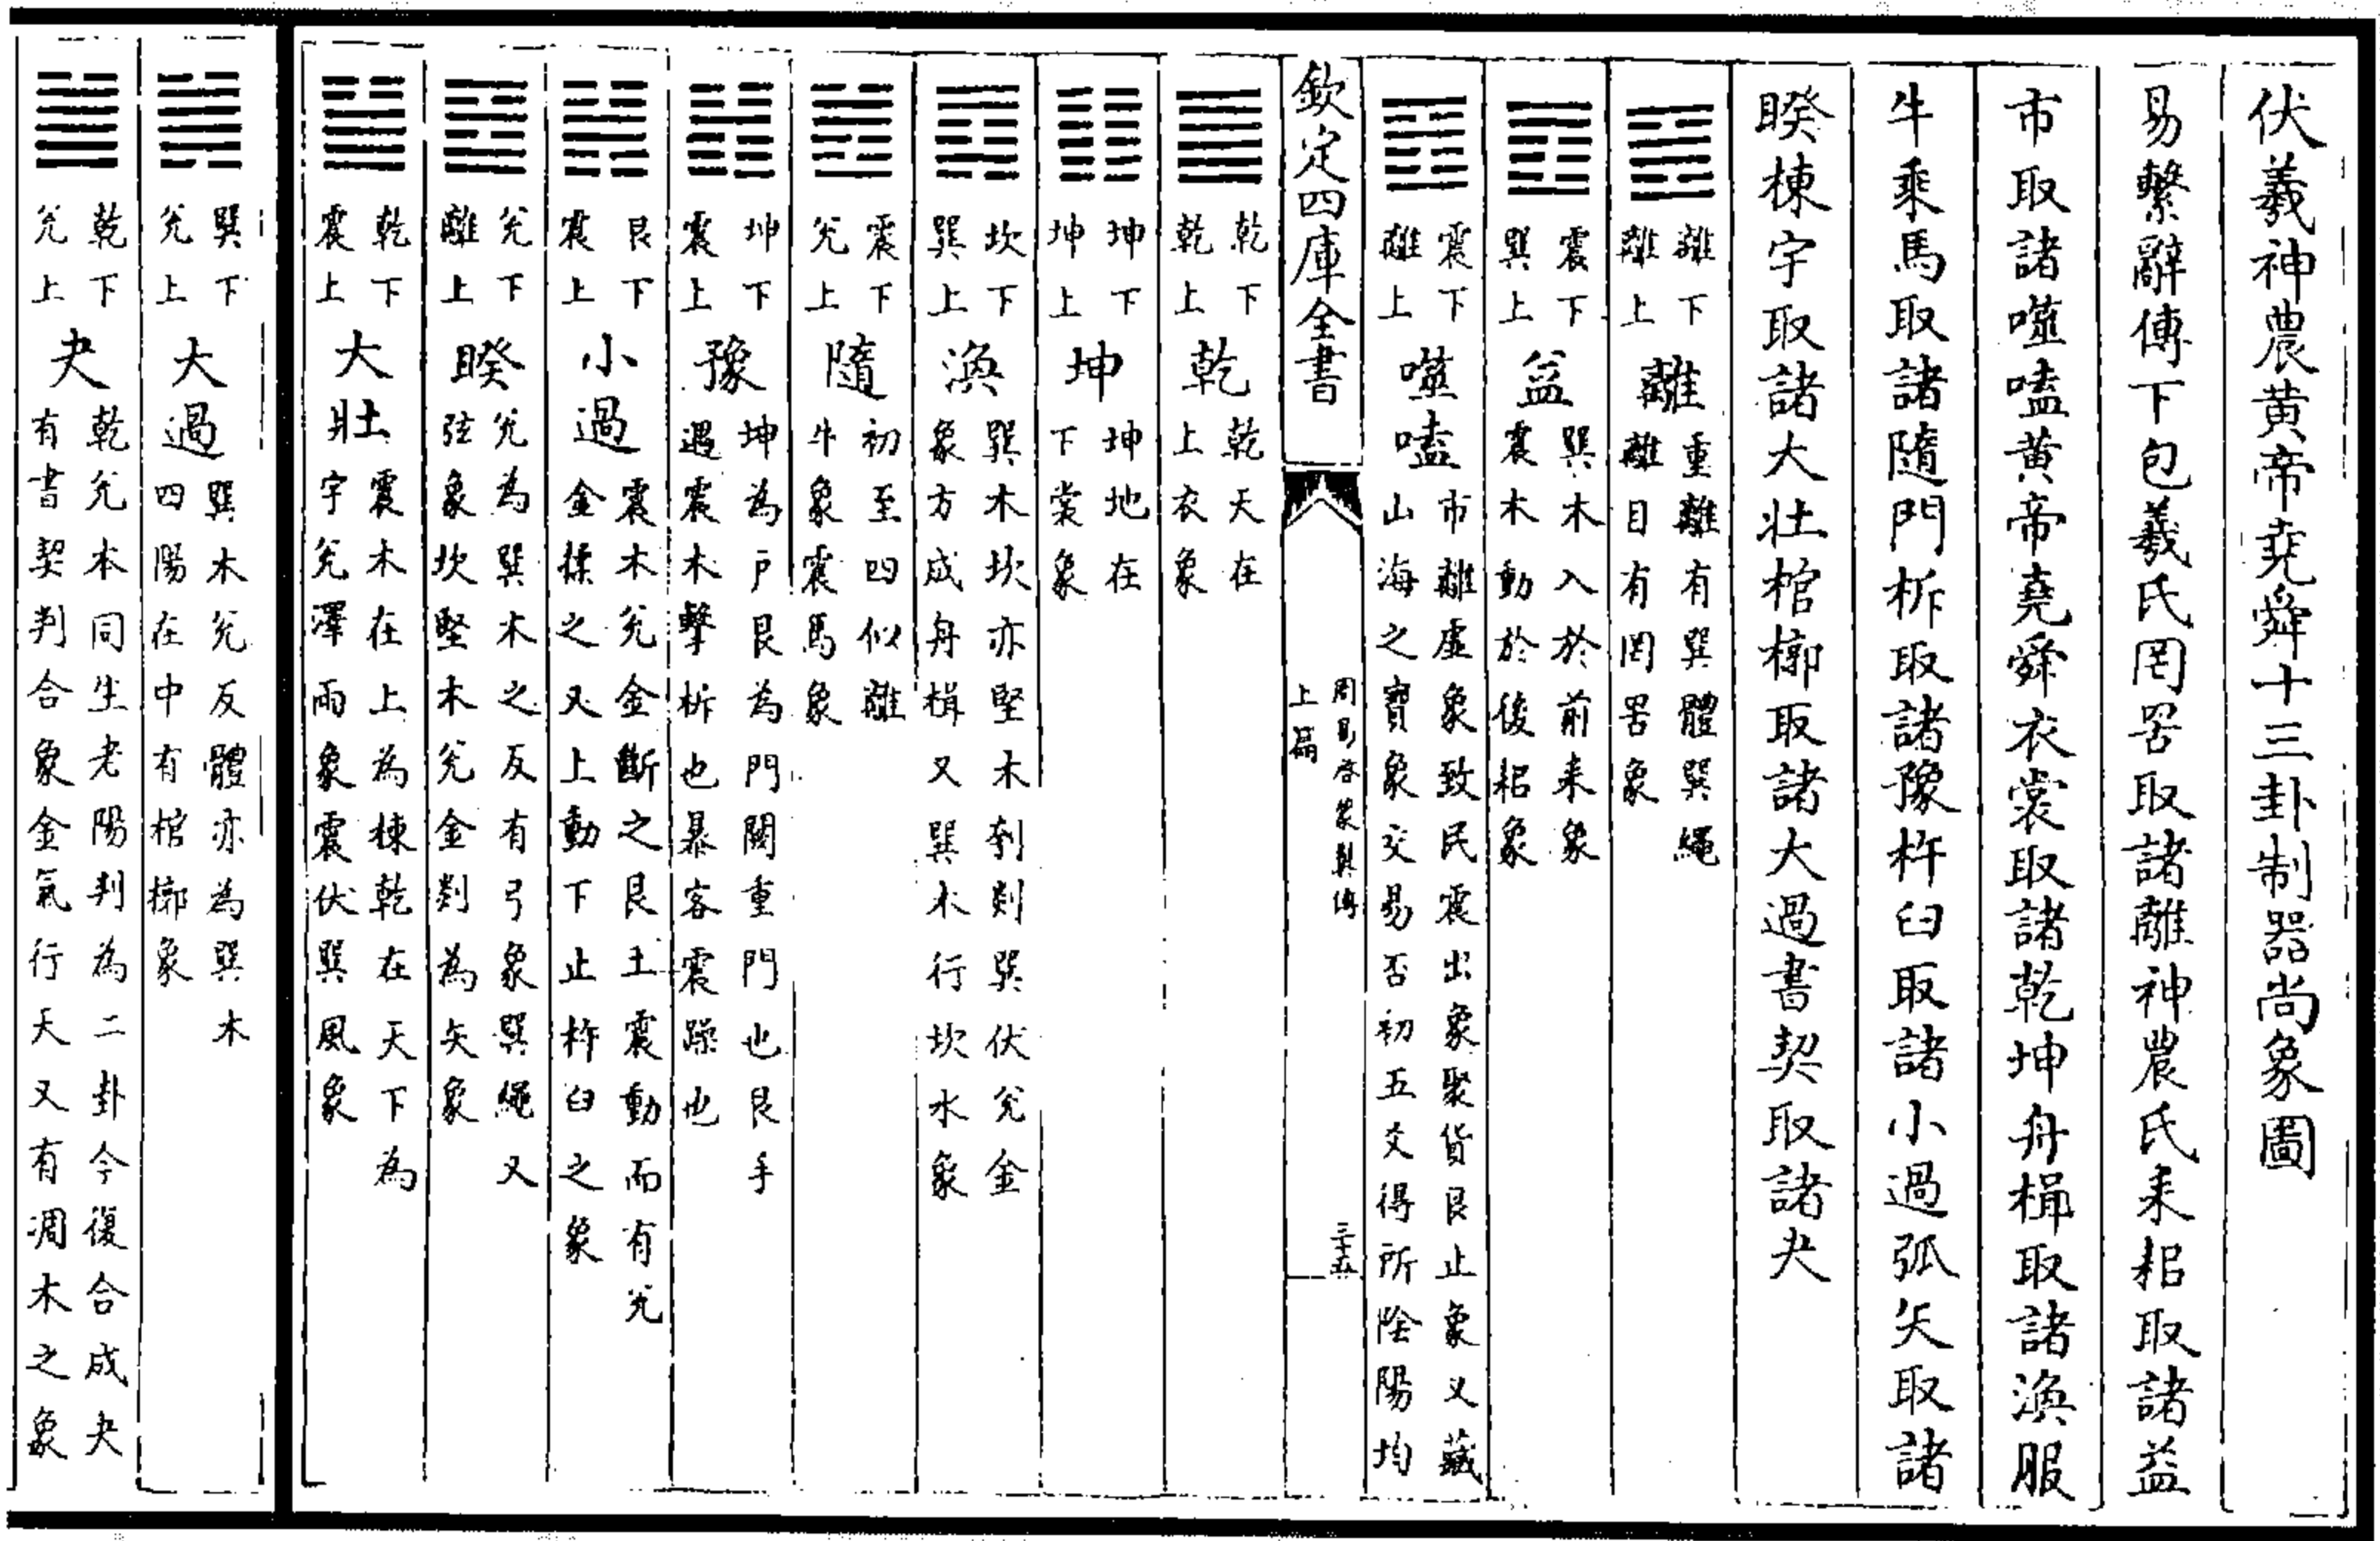 伏羲神農黄帝堯舜十三卦制器尚象圖
易繫辭傳下包羲氏罔罟取諸離神農氏耒耜取諸益
市取諸噬嗑黄帝堯舜衣裳取諸乾坤舟楫取諸渙服
牛乘馬取諸隨門柝取諸豫杵臼取諸小過弧矢取諸
睽棟宇取諸大壮棺槨取諸大過書契取諸夬
離下
離上
離
重離有巽體巽繩
離目有罔罟象
震下
巽上
益
巽木入於前耒象
震木動於後耜象
震下
離上
噬嗑
市離虛象致民震出象聚貨艮止象又藏
山海之寶象交易否初五爻得所陰陽均
欽定四庫全書
周易啓蒙翼傳
上篇
三十五
乾下
乾上
乾
乾天在
上衣象
坤下
坤上
坤
坤地在
下裳象
坎下
巽上
渙
巽木坎亦堅木刳剡巽伏兊金
象方成舟楫又巽木行坎水象
震下
兊上
隨
初至四似離
牛象震馬象
坤下
震上
豫
坤為戶艮為門闕重門也艮手
遇震木擊柝也暴客震躁也
艮下
震上
小過
震木兊金斷之艮土震動而有兊
金揉之又上動下止杵臼之象
兊下
離上
睽
兊為巽木之反有弓象巽繩又
弦象坎堅木兊金剡為矢象
乾下
震上
大壮
震木在上為棟乾在天下為
宇兊澤雨象震伏巽風象
巽下
兊上
大過
巽木兊反體亦為巽木
四陽在中有棺槨象
乾下
兊上
夬
乾兊本同生老陽判為二卦今復合成夬
有書契判合象金氣行天又有凋木之象